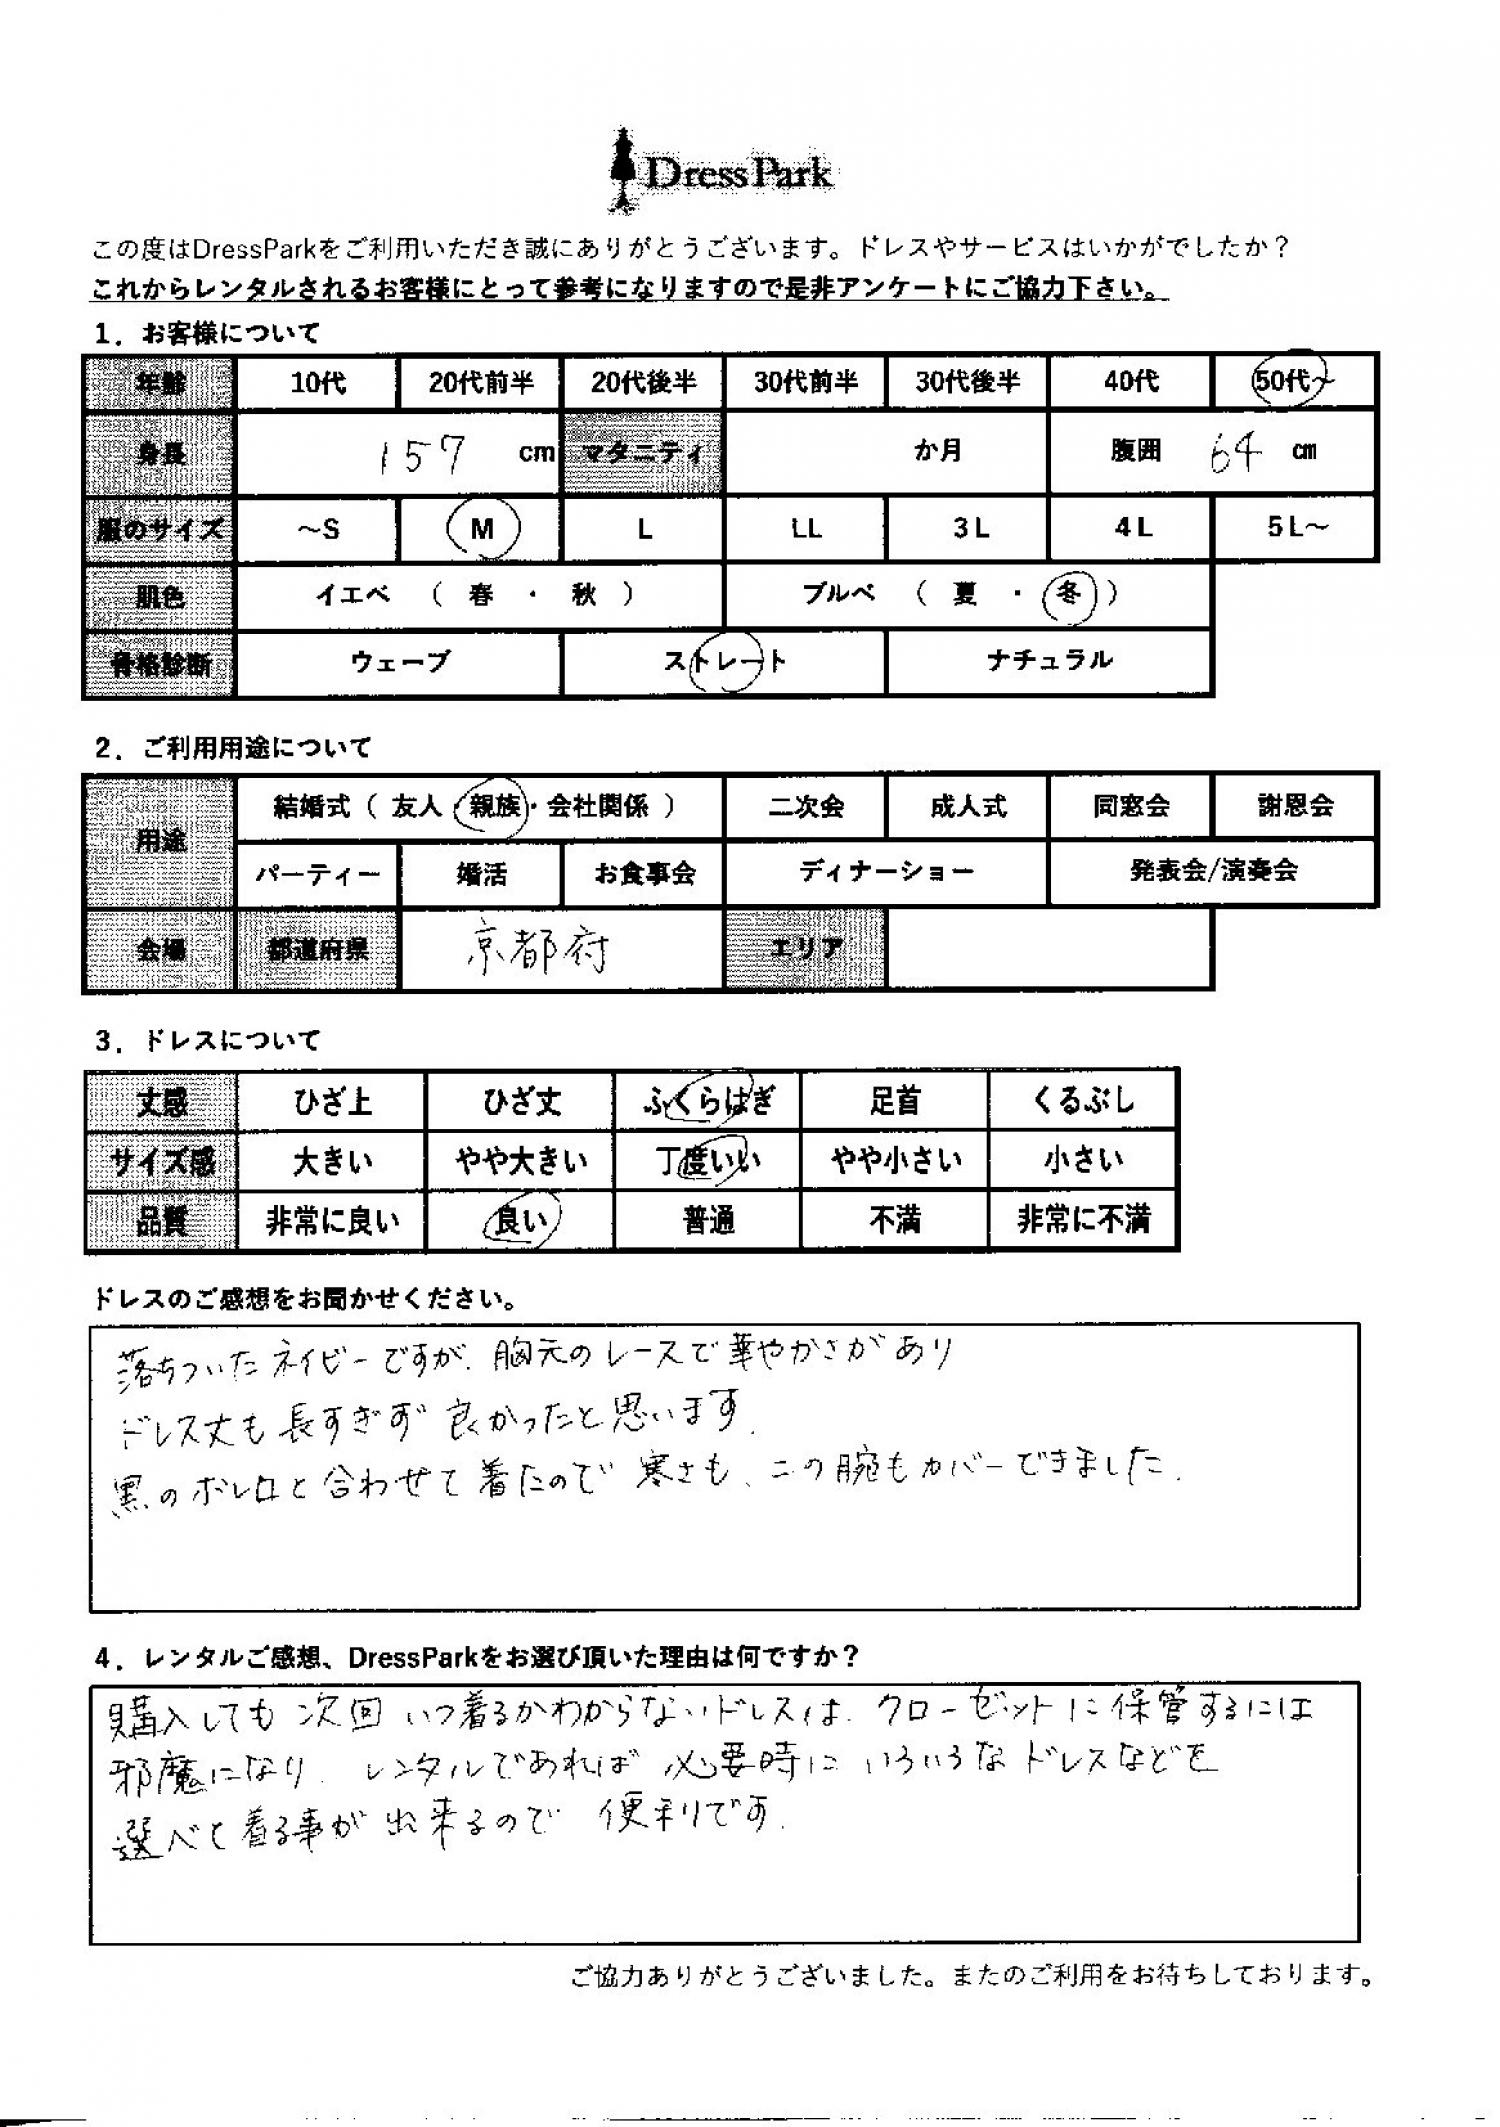 DressPark
この度はDressParkをご利用いただき誠にありがとうございます。ドレスやサービスはいかがでしたか？
これからレンタルされるお客様にとって参考になりますので是非アンケートにご協力下さい。
1．お客様について
年齢 10代 20代前半 20代後半 30代前半 30代後半 40代 50代～
身長 157 cm マタニティ か月 腹囲 64 cm
服のサイズ ～S M L LL 3L 4L 5L～
肌色 イエベ （ 春 ・ 秋 ） ブルベ （ 夏 ・ 冬 ）
骨格診断 ウェーブ ストレート ナチュラル
2．ご利用用途について
用途 結婚式（ 友人・親族・会社関係 ） 二次会 成人式 同窓会 謝恩会
パーティー 婚活 お食事会 ディナーショー 発表会/演奏会
会場 都道府県 京都府 エリア
3．ドレスについて
丈感 ひざ上 ひざ丈 ふくらはぎ 足首 くるぶし
サイズ感 大きい やや大きい 丁度いい やや小さい 小さい
品質 非常に良い 良い 普通 不満 非常に不満
ドレスのご感想をお聞かせください。
落ちついたネイビーですが、胸元のレースで華やかさがあり
ドレス丈も長すぎず良かったと思います。
黒のボレロと合わせて着たので寒さも、二の腕もカバーできました。
4．レンタルご感想、DressParkをお選び頂いた理由は何ですか？
購入しても次回いつ着るかわからないドレスは、クローゼットに保管するには
邪魔になり、レンタルであれば必要時にいろいろなドレスなどを
選べて着る事が出来るので便利です。
ご協力ありがとうございました。またのご利用をお待ちしております。